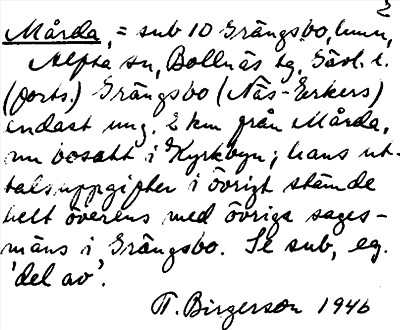 2
Mårda, = sub 10 Grängsbo, hmn,
Alfta sn, Bollnäs tg, Gävl. l.
(forts.) Grängsbo (Näs-Erkers)
endast ung. 2 km från Mårda,
nu bosatt i Kyrkbyn; hans ut-
talsuppgifter i övrigt stämde
helt överens med övriga sages-
mäns i Grängsbo. Se sub, eg.
'del av'.
T. Birgerson 1946